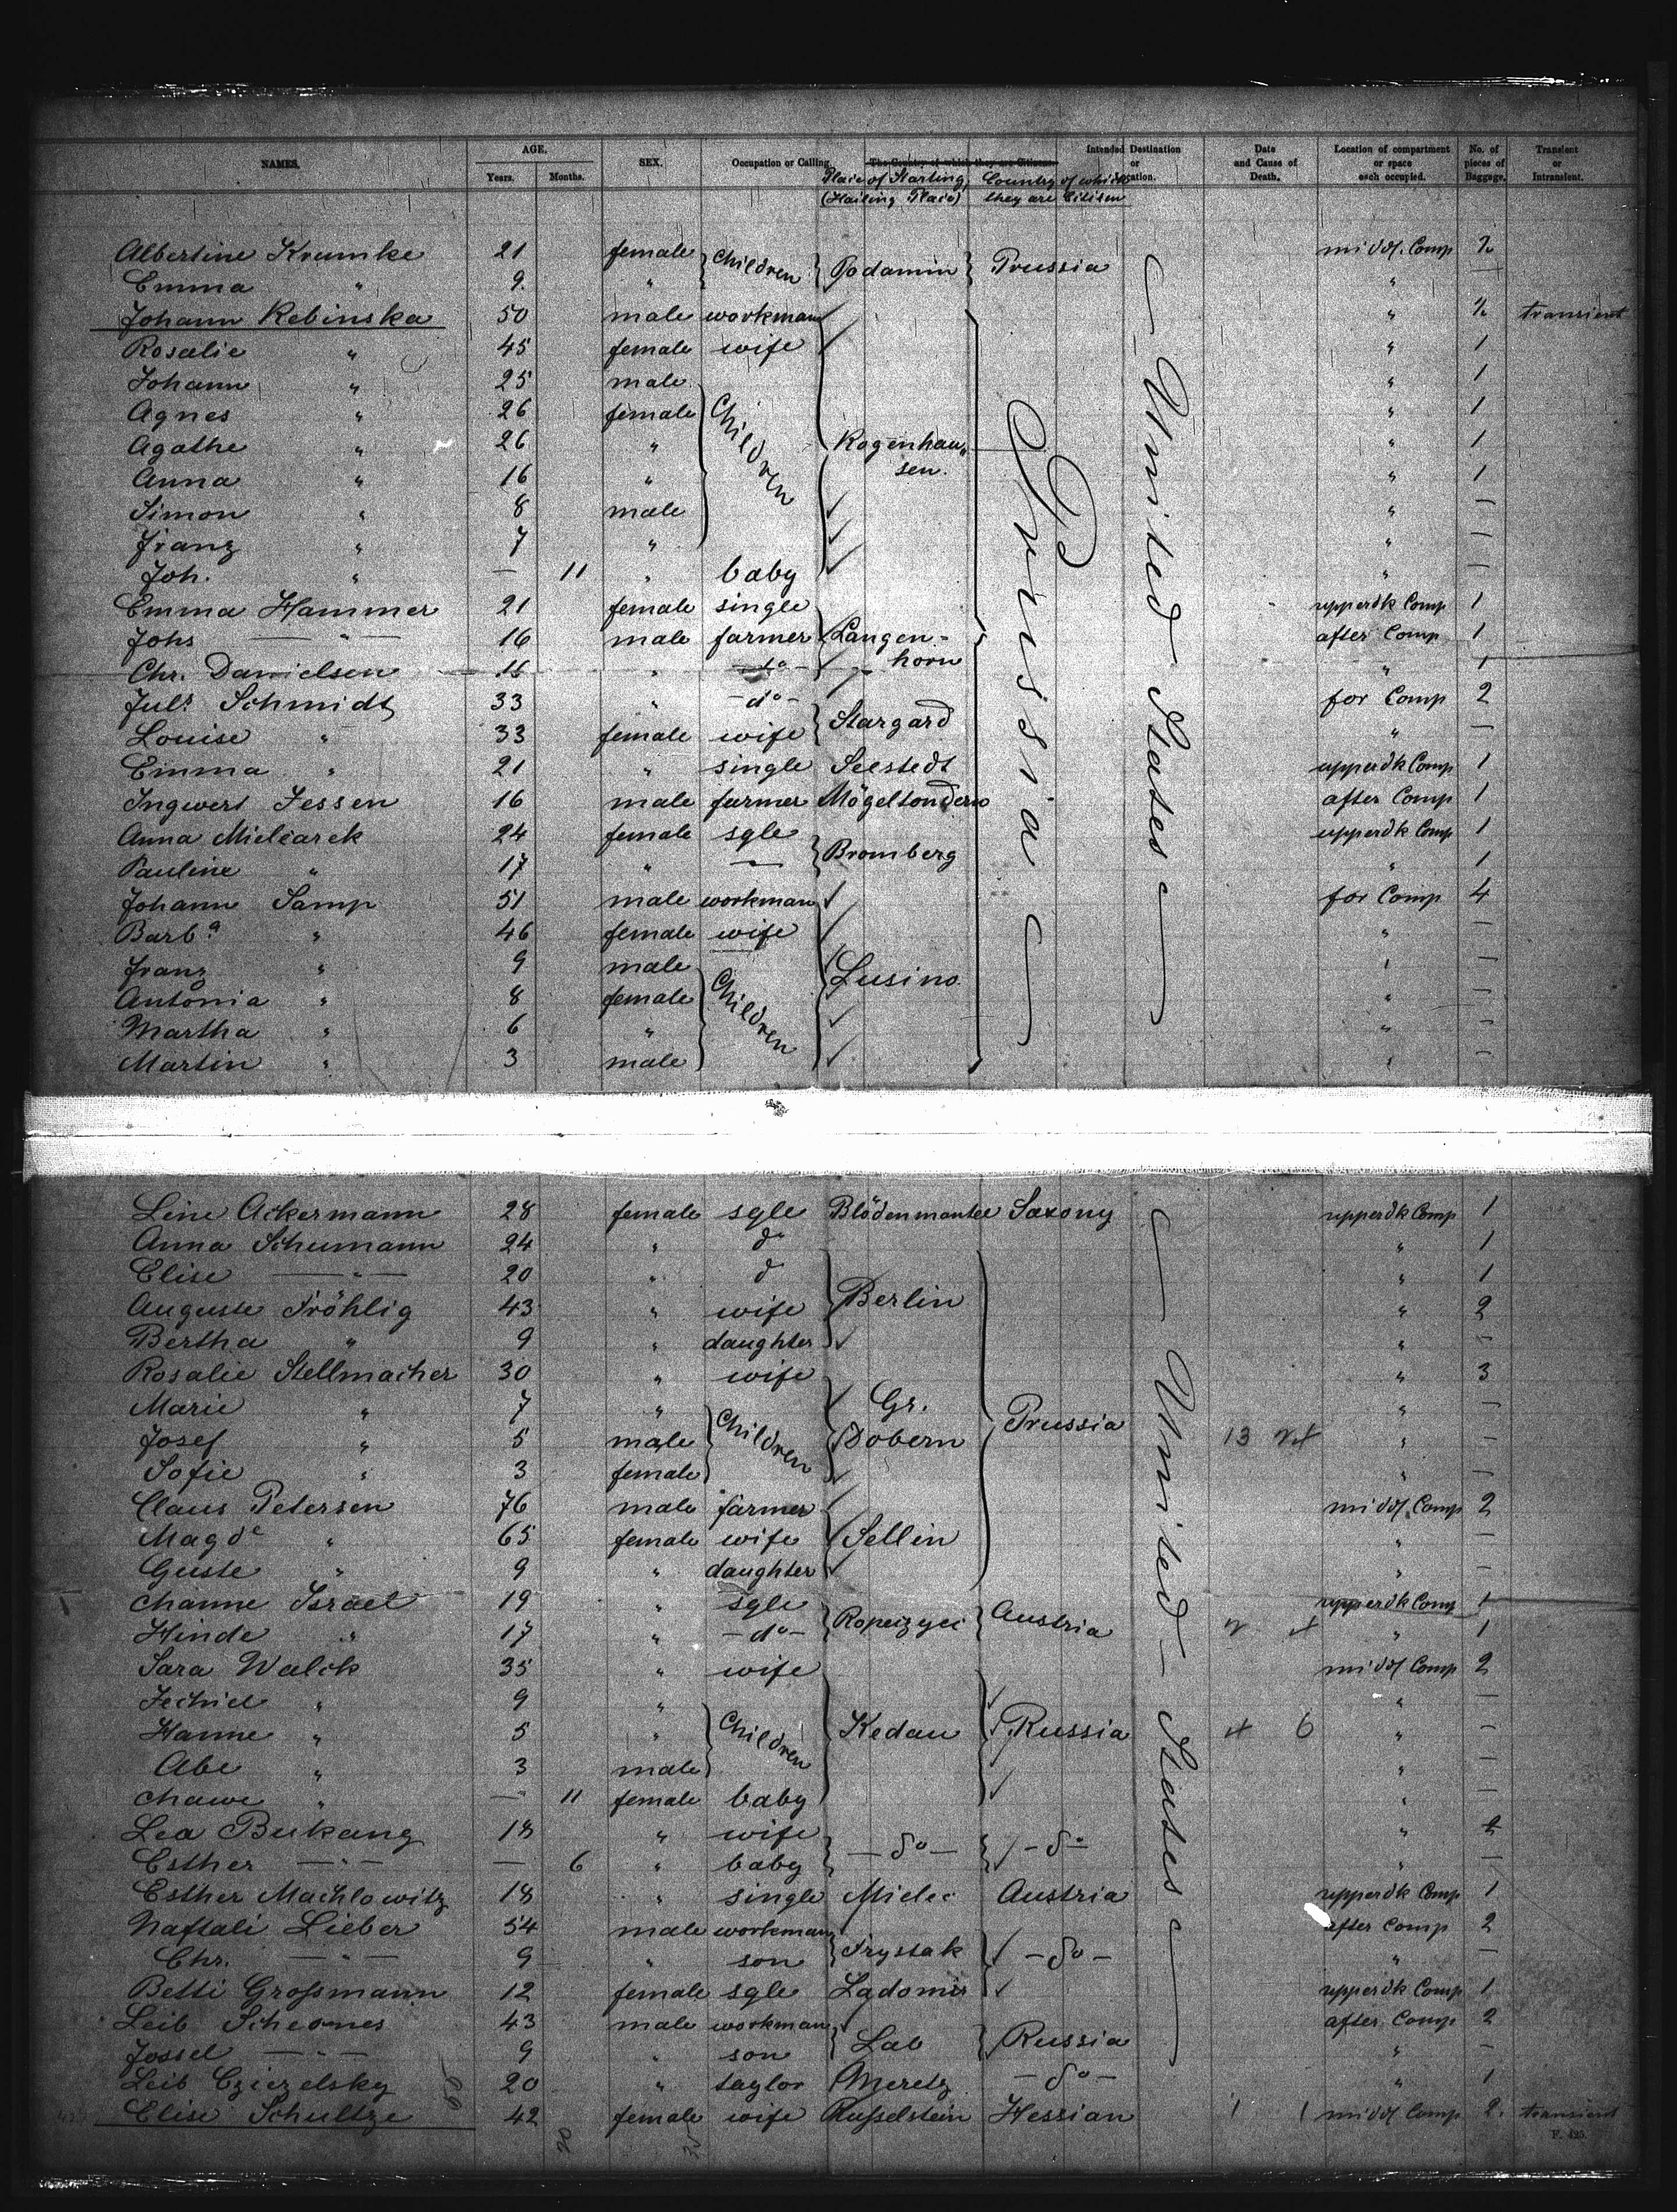 NAMES. AGE. SEX. Occupation or Calling. The Country of which they are Citizens. Intended Destination or Location. Date and Cause of Death. Location of compartment or space each occupied. No. of pieces of Baggage. Transient or Intransient.
Years. Months. Place of Starting, (Hailing Place) Country of which they are Citizen
Albertine Krumke 21 female Children Podamin Prussia midd. Comp
Emma " 9 " "
Johann Rebinska 50 male workman " transient
Rosalie " 45 female wife " 1
Johann " 25 male " 1
Agnes " 26 female Children " 1
Agathe " 26 " Rogenhau„ " 1
Anna " 16 " sen. " 1
Simon " 8 male " —
Franz " 7 " " —
Joh. " — 11 " baby " —
Emma Hammer 21 female single upperdk Comp 1
Johs —"— 16 male farmer Langen- after Comp 1
Chr. Danielsen 16 " -do- horn " 1
Juls Schmidt 33 " -do- Stargard for Comp 2
Louise " 33 female wife " —
Emma " 21 " single Seestedt upperdk Comp 1
Ingwert Jessen 16 male farmer Mögeltondern after Comp 1
Anna Mielcarek 24 female sgle Bromberg upperdk Comp 1
Pauline " 17 " — " 1
Johann Samp 51 male workman for Comp 4
Barba " 46 female wife " —
Franz " 9 male Children Lusino " —
Antonia " 8 female " —
Martha " 6 " " —
Martin " 3 male " —
Prussia
United States
Line Ackermann 28 female sgle Blödenmantel Saxony upperdk Comp 1
Anna Schumann 24 " do " 1
Elise —"— 20 " d " 1
Auguste Fröhlig 43 " wife Berlin " 2
Bertha " 9 " daughter " —
Rosalie Stellmacher 30 " wife " 3
Marie " 7 " Children Gr. " —
Josef " 5 male Dobern Prussia 13 " —
Sofie " 3 female " —
Claus Petersen 76 male farmer midd Comp 2
Magde " 65 female wife Sellin " —
Guste " 9 " daughter " —
Channe Israel 19 " sgle Ropczyci Austria upperdk Comp 1
Hinde " 17 " -do- " 1
Sara Walck 35 " wife midd Comp 2
Jechiel " 9 " Children " —
Hanne " 5 " Kedau Russia 6 " —
Abe " 3 male " —
Chawe " — 11 female baby " —
Lea Beikang 18 " wife -do- -do- " 2
Esther —"— — 6 " baby " —
Esther Machlowitz 18 " single Mielec Austria upperdk Comp 1
Naftali Lieber 54 male workman Frystak -do- after Comp 2
Chr. —"— 9 " son " —
Betti Großmann 12 female sgle Ladomir upperdk Comp 1
Leib Scheones 43 male workman Lab Russia after Comp 2
Jossel —"— 9 " son " —
Leib Czierelsky 20 " taylor Meretz -do- " 1
Elise Schultze 42 female wife Rußelstein Hessian 1 1 midd Comp 2. transient
United States
F. 425.